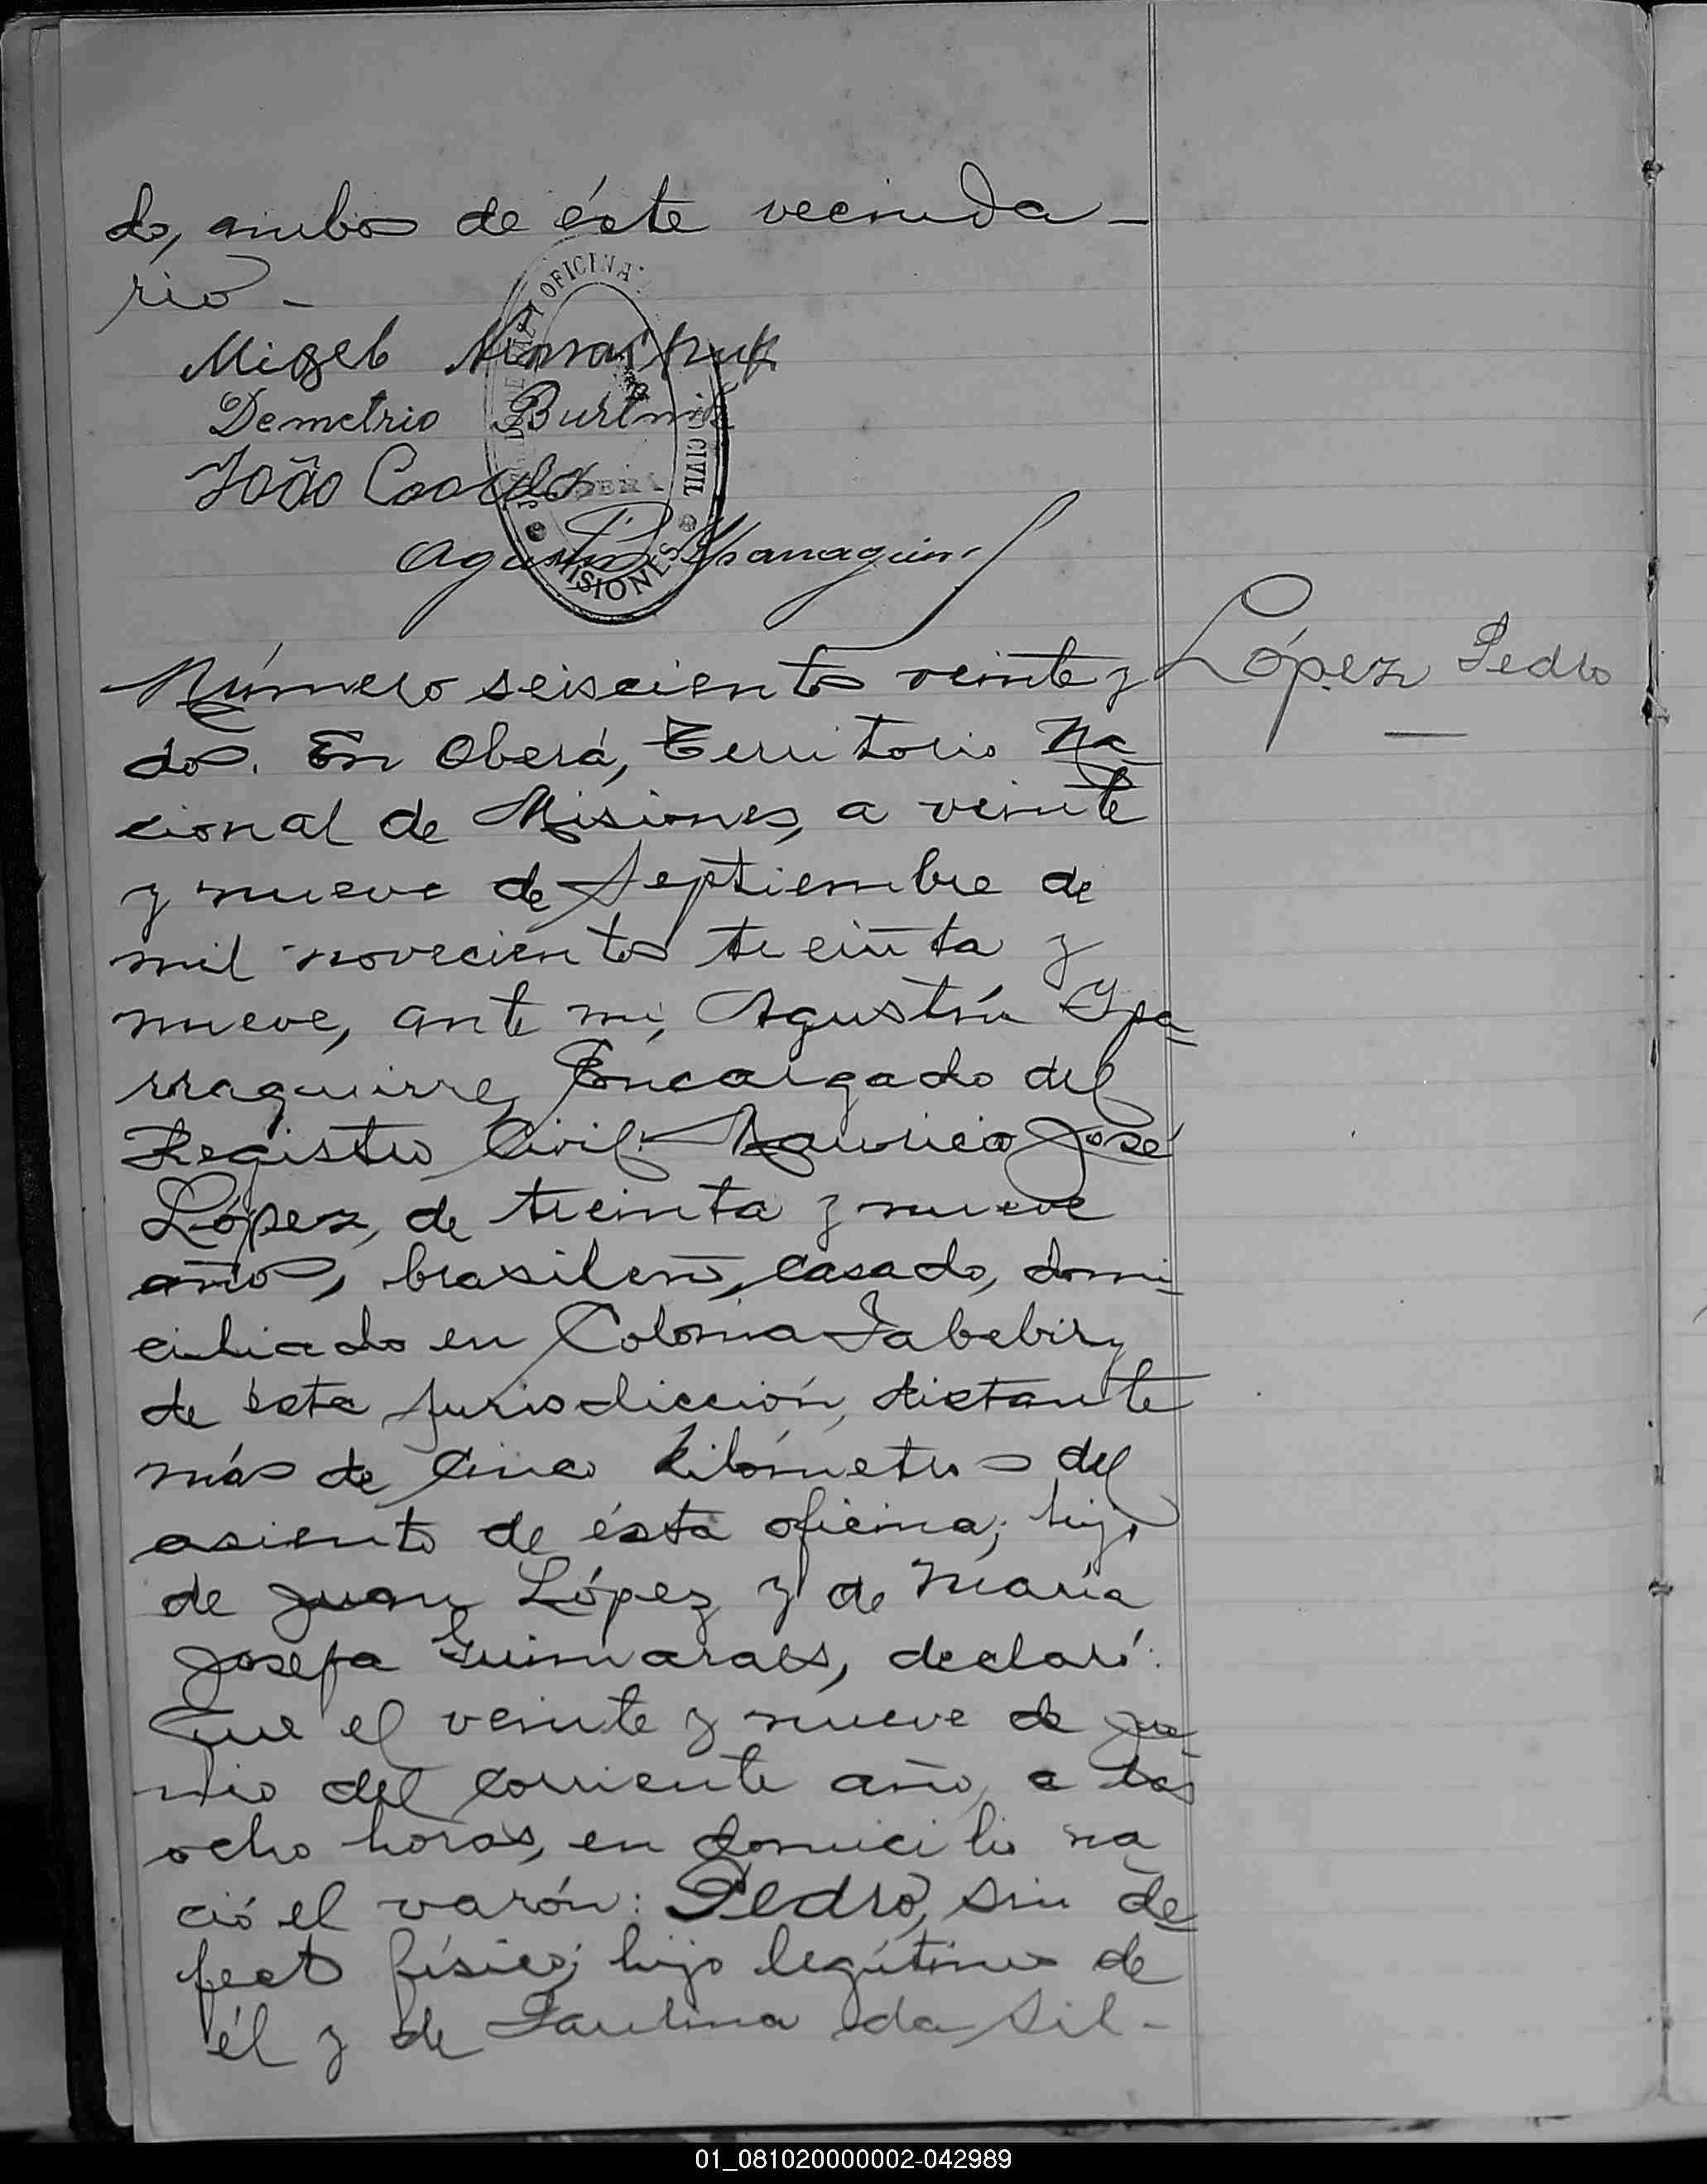 do, ambos de éste vecinda-
rio -
Migeb
Demetrio Burtnik
João
Agustín Yparraguirre
OFICINA
CIVIL
OBERÁ
MISIONES
Número seiscientos veinte y
dos. En Oberá, Territorio Na-
cional de Misiones, a veinte
y nueve de Septiembre de
mil novecientos treinta y
nueve, ante mi, Agustín Ypa-
rraguirre, Encargado del
Registro Civil: Mauricio José
López, de treinta y nueve
años, brasileño, casado, domi-
ciliado en Colonia Yabebiry
de ésta jurisdicción, distante
más de cinco kilómetros del
asiento de ésta oficina; hijo
de Juan López y de María
Josefa Guimaraes, declaró:
Que el veinte y nueve de ju-
nio del corriente año, a las
ocho horas, en domicilio na
ció el varón: Pedro, sin de-
fecto físico; hijo legítimo de
él y de Paulina da Sil-
López Pedro
01_081020000002-042989